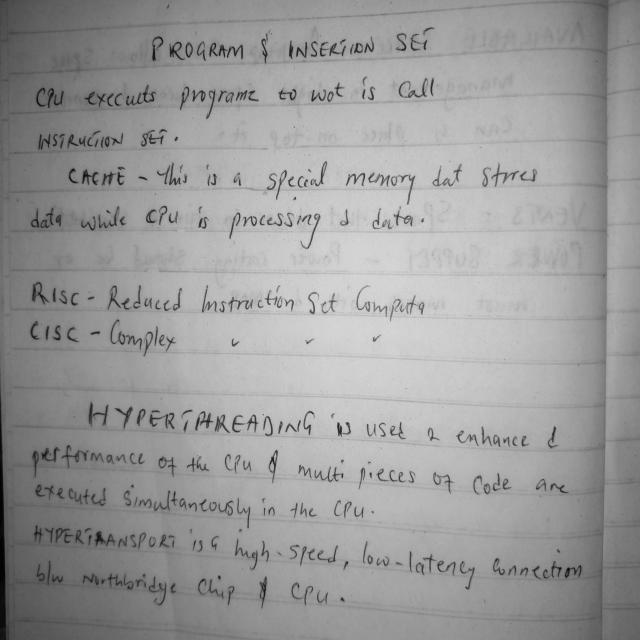 PROGRAM & INSERTION SET
CPU executs programz to wot is Call
INSTRUCTION SET.
CACHE - This is a special memory dat stores
data while CPU is processing d data.
RISC - Reduced Instruction Set Computa
CISC - Complex " " "
HYPERTHREADING is used 2 enhance d
performance of the CPU & multi pieces of Code are
executed simultaneously in the CPU.
HYPERTRANSPORT is a high-speed, low-latency Connection
b/w Northbridge Chip & CPU.